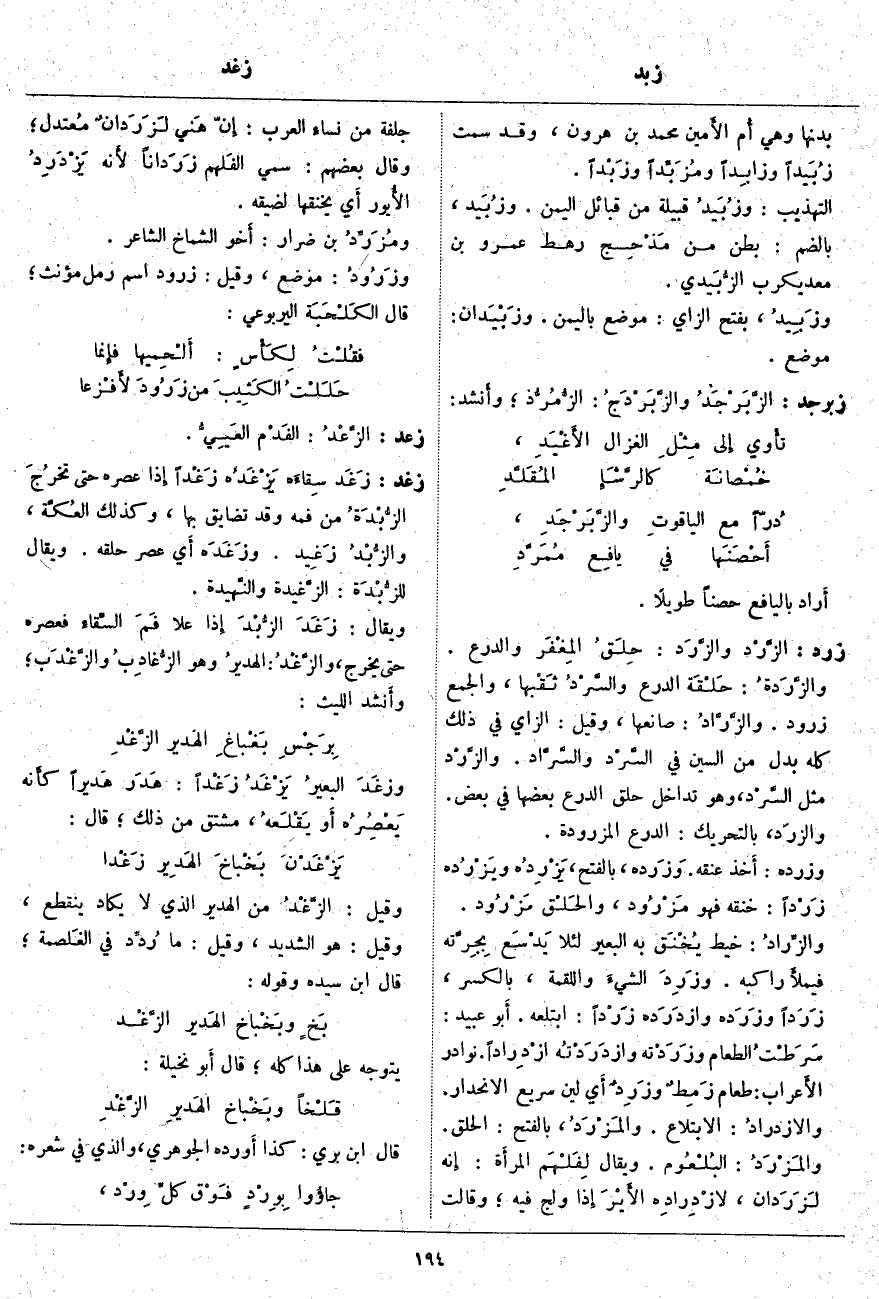 زبد
زغد
بدنها وهي أم الأمين محمد بن هرون ، وقد سمت
زُبَيداً وزابِداً ومُزَبَّداً وزَبْداً .
التهذيب : وزُبَيدُ قبيلة من قبائل اليمن . وزُبَيد ،
بالضم : بطن من مَذْحِج رهط عمرو بن
معديكرب الزُّبَيدي .
وزَبِيدُ ، بفتح الزاي : موضع باليمن . وزَبَيْدان :
موضع .
زبرجد : الزَّبَرْجَدُ والزَّبَرْدَجُ : الزُّمُرُّذ ؛ وأنشد :
تأوي إلى مِثْلِ الغزال الأغْيَدِ ،
خُمْصانة كالرَّشَإِ المُقَلَّدِ
دُرّاً مع الياقوتِ والزَّبَرْجَدِ ،
أَحْصَنَها في يافِعٍ مُمَرَّدِ
أراد باليافع حصناً طويلًا .
زرد : الزَّرْد والزَّرَد : حِلَقُ المِغْفَر والدرع .
والزَّرَدةُ : حَلْقَة الدرع والسَّرْدُ ثَقْبها ، والجمع
زرود . والزَّرَّادُ : صانعها ، وقيل : الزاي في ذلك
كله بدل من السين في السَّرْد والسَّرَّاد . والزَّرْد
مثل السَّرْد، وهو تداخل حلق الدرع بعضها في بعض .
والزرَد، بالتحريك : الدرع المزرودة .
وزرده : أخذ عنقه. وَزَرَده ، بالفتح، يَزْرِدُه ويَزْرُده
زَرَداً : خنقه فهو مَزْرُود ، والحَلْق مَزْرُود .
والزِّرادُ : خيط يُخْنَق به البعير لئلا يَدْسَع بِجِرَّته
فيملأ راكبه . وزَرِدَ الشيءَ واللقمة ، بالكسر ،
زَرَداً وزَرَده وازدَرَده زَرْداً : ابتلعه . أبو عبيد :
سَرَطْتُ الطعام وزَرَدْته وازدَرَدْتُه ازْدِراداً. نوادر
الأعراب: طعام زَمِطٌ وزَرِدٌ أي لين سريع الانحدار .
والازدراد : الابتلاع . والمَزْرَدُ ، بالفتح : الحلق .
والمَزْرَدُ : البُلْعُوم . ويقال لِفَلْهَم المرأة : إنه
لَزَرَدان ، لازْدِرادِه الأَيْرَ إذا ولج فيه ؛ وقالت
جلفة من نساء العرب : إنّ هَني لَزَرَدانٌ مُعتدل ؛
وقال بعضهم : سمي الفَلْهم زَرَداناً لأنه يَزْدَرِدُ
الأُيور أي يخنقها لضيقه .
ومُزَرِّدُ بن ضرار : أخو الشماخ الشاعر .
وزَرُودُ : موضع ، وقيل : زرود اسم رمل مؤنث ؛
قال الكَلْحَبَة اليربوعي :
فقُلْتُ لِكَأْسٍ : ألْجِميها فإنما
حَلَلْتُ الكَثِيبَ من زَرُودَ لأفْزعا
زعد : الزَّعْدُ : الفَدْم العَيِيُّ .
زغد : زَغَد سِقاءَه يَزْغَدُه زَغْداً إذا عصره حتى تخرُجَ
الزُّبْدَةُ من فمه وقد تضايق بها ، وكذلك العُكَّة ،
والزُّبْدُ زَغِيد . وزَغَدَه أي عصر حلقه . ويقال
للزُّبْدَة : الزَّغِيدة والنَّهِيدة .
ويقال : زَغَدَ الزُّبْدَ إذا علا فَمَ السَّقاء فعصره
حتى يخرج، والزَّغْدُ: الهديرُ وهو الزُّغادِبُ والزَّغْدَب؛
وأنشد الليث :
بِرَجْسِ بَغْباغِ الهَدير الزَّغْدِ
وزغَدَ البعيرُ يَزْغَدُ زَغْداً : هَدَر هَديراً كأنه
يَعْصِرُه أو يَقْلَعه ، مشتق من ذلك ؛ قال :
يَزْغَدْنَ بَخْباخَ الهَدِير زَغْدا
وقيل : الزَّغْدُ من الهدير الذي لا يكاد ينقطع ،
وقيل : هو الشديد ، وقيل : ما رُدِّد في الغَلصمة ؛
قال ابن سيده وقوله :
بَخٍ وبَخْباخ الهَدير الزَّغْد
يتوجه على هذا كله ؛ قال أبو نخيلة :
قَلْخاً وبَخْباخ الهَديرِ الزَّغْدِ
قال ابن بري : كذا أورده الجوهري، والذي في شعره :
جاؤوا بِوِرْدٍ فَوْقَ كلِّ وِرْدِ ،
١٩٤